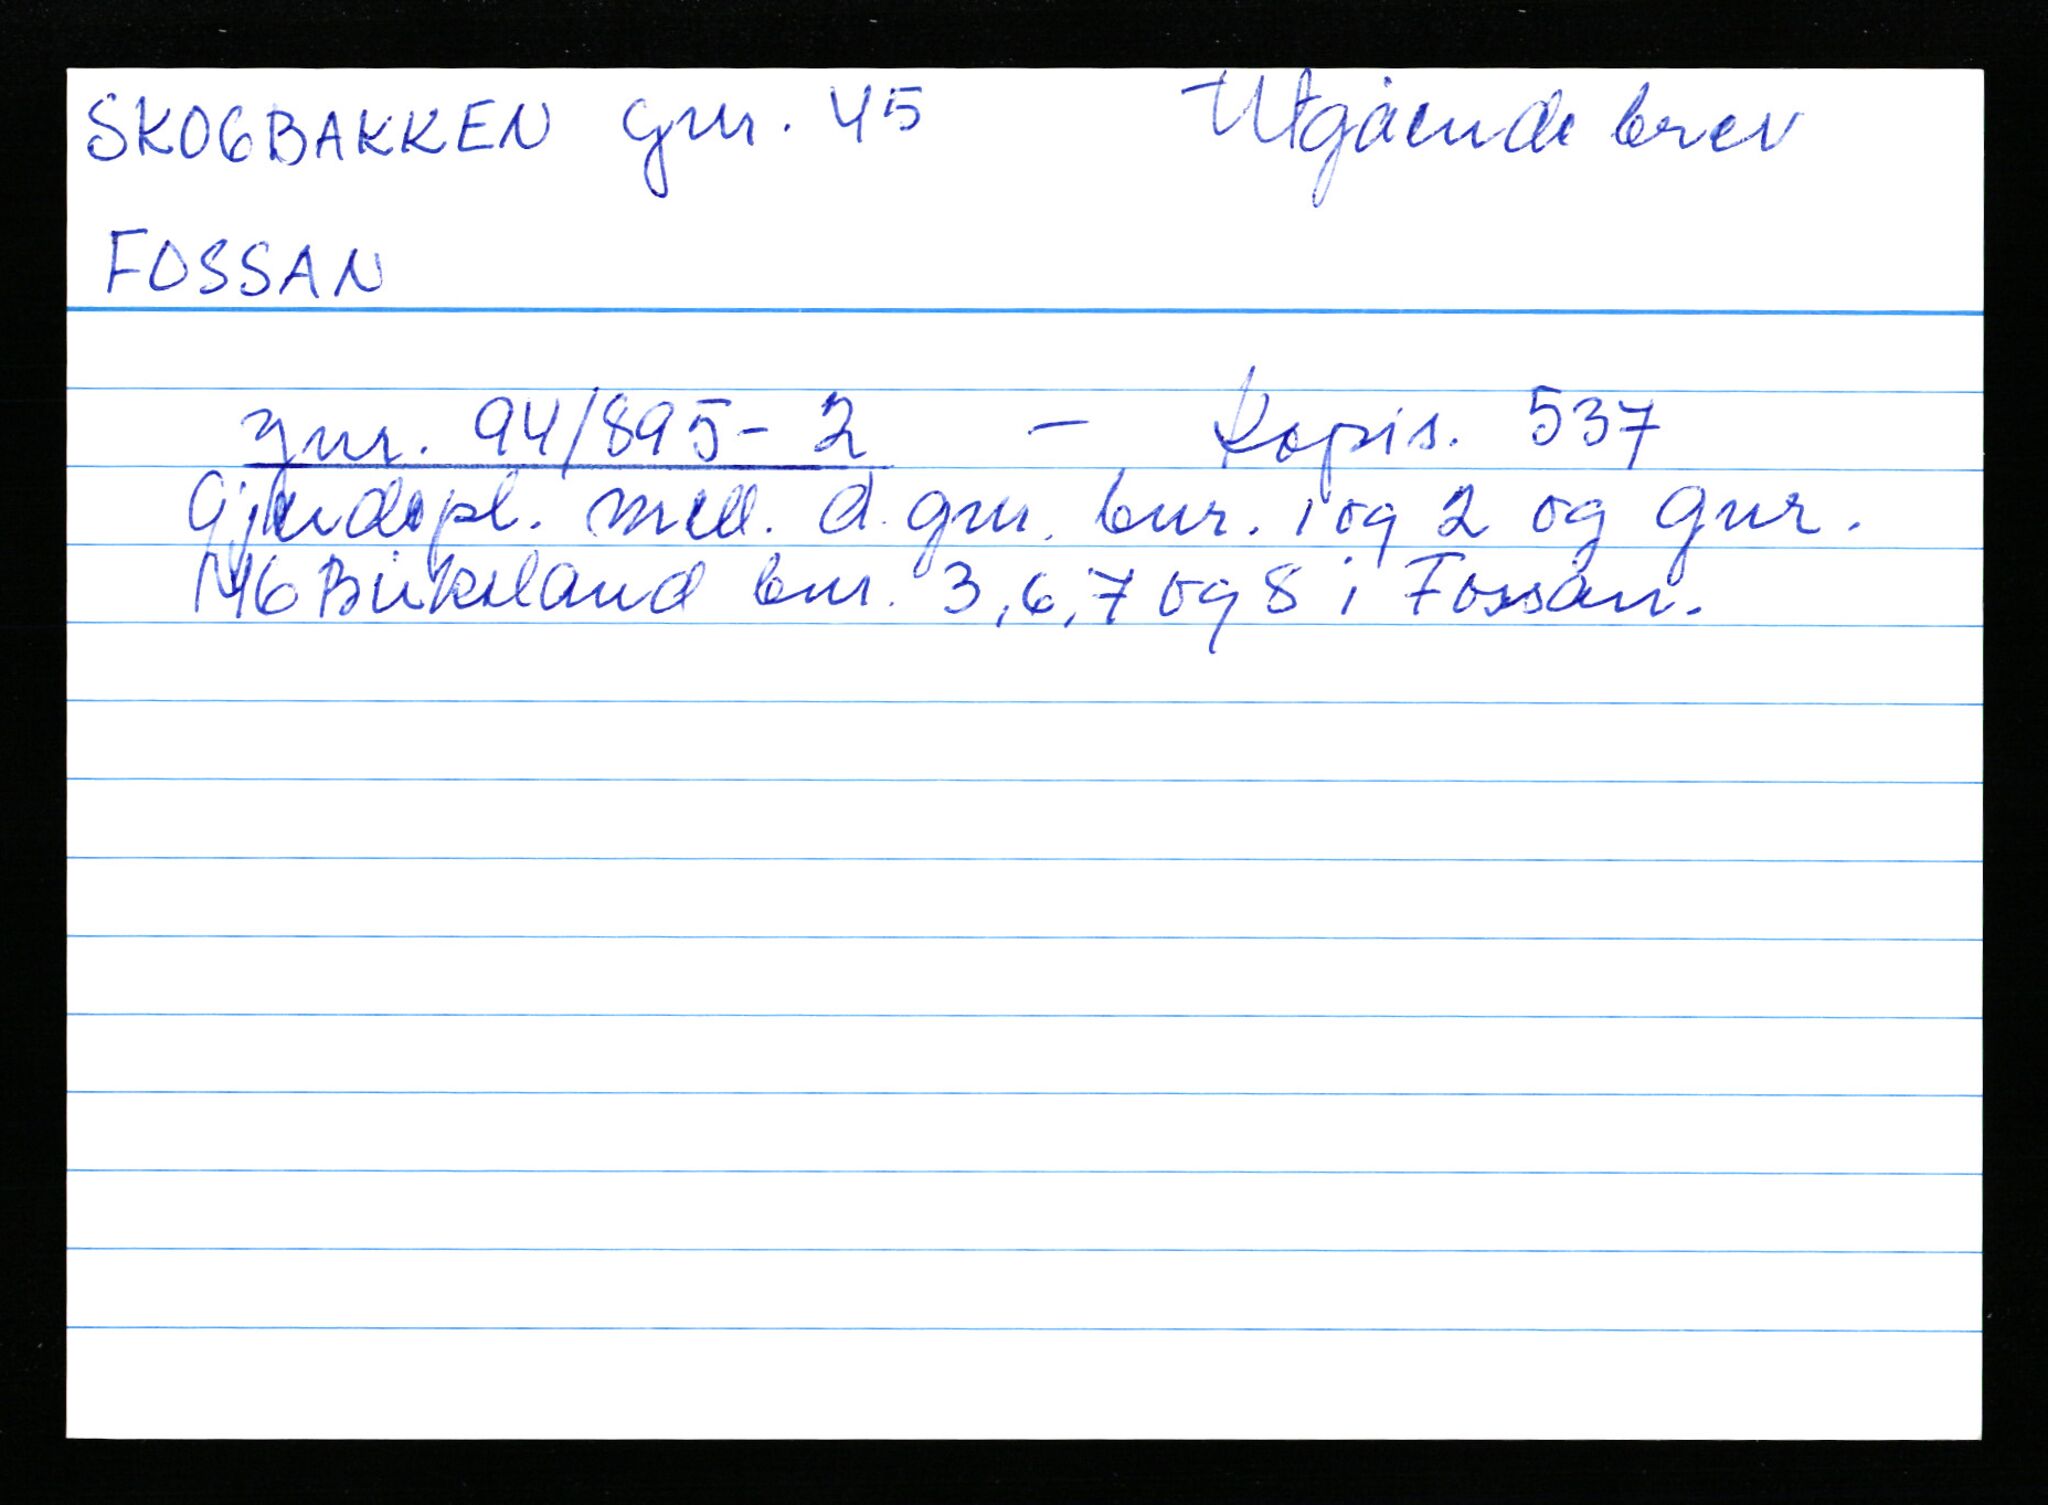 SKOGBAKKEN gnr. 45 Utgående brev
FOSSAN
jnr. 94/895-2 - Kopis. 537
Gjerdepl. mell. d. gnr. bnr. 1 og 2 og gnr.
46 Birkeland bnr. 3, 6, 7 og 8 i Fossan.